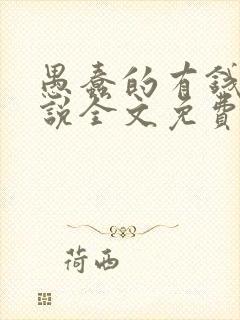 愚蠢的有錢
說全文免費
荷西